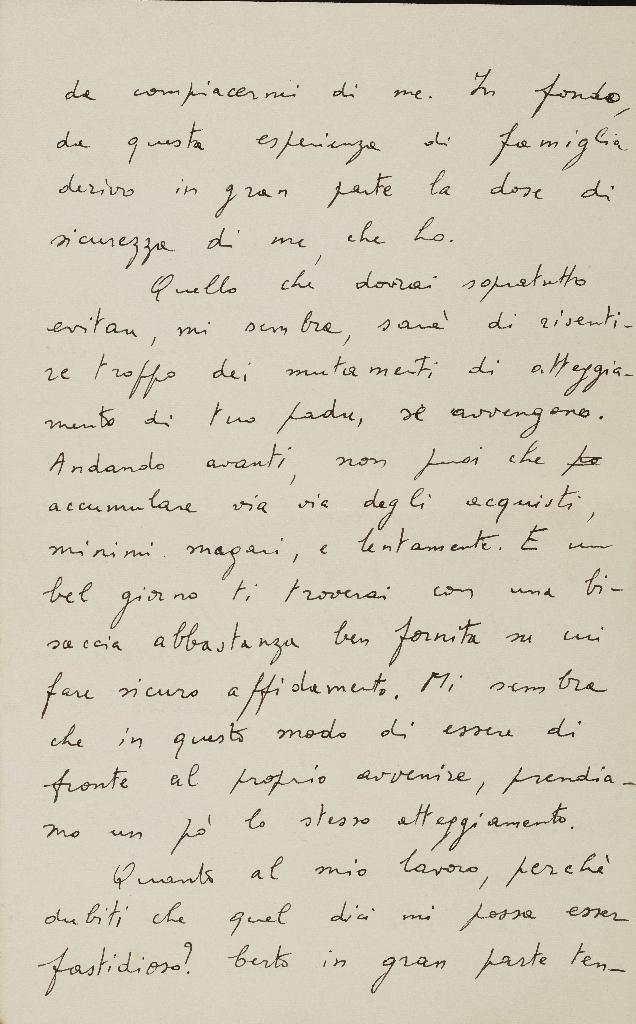 da compiacermi di me. In fondo,
da questa esperienza di famiglia
derivo in gran parte la dose di
sicurezza di me, che ho.
Quello che dovrai sopratutto
evitare, mi sembra, sarà di risenti-
re troppo dei mutamenti di atteggia-
mento di tuo padre, se avvengono.
Andando avanti, non puoi che po
accumulare via via degli acquisti,
minimi magari, e lentamente. E un
bel giorno ti troverai con una bi-
saccia abbastanza ben fornita su cui
fare sicuro affidamento. Mi sembra
che in questo modo di essere di
fronte al proprio avvenire, prendia-
mo un pò lo stesso atteggiamento.
Quanto al mio lavoro, perchè
dubiti che quel dici mi possa esser
fastidioso? Certo in gran parte ten-